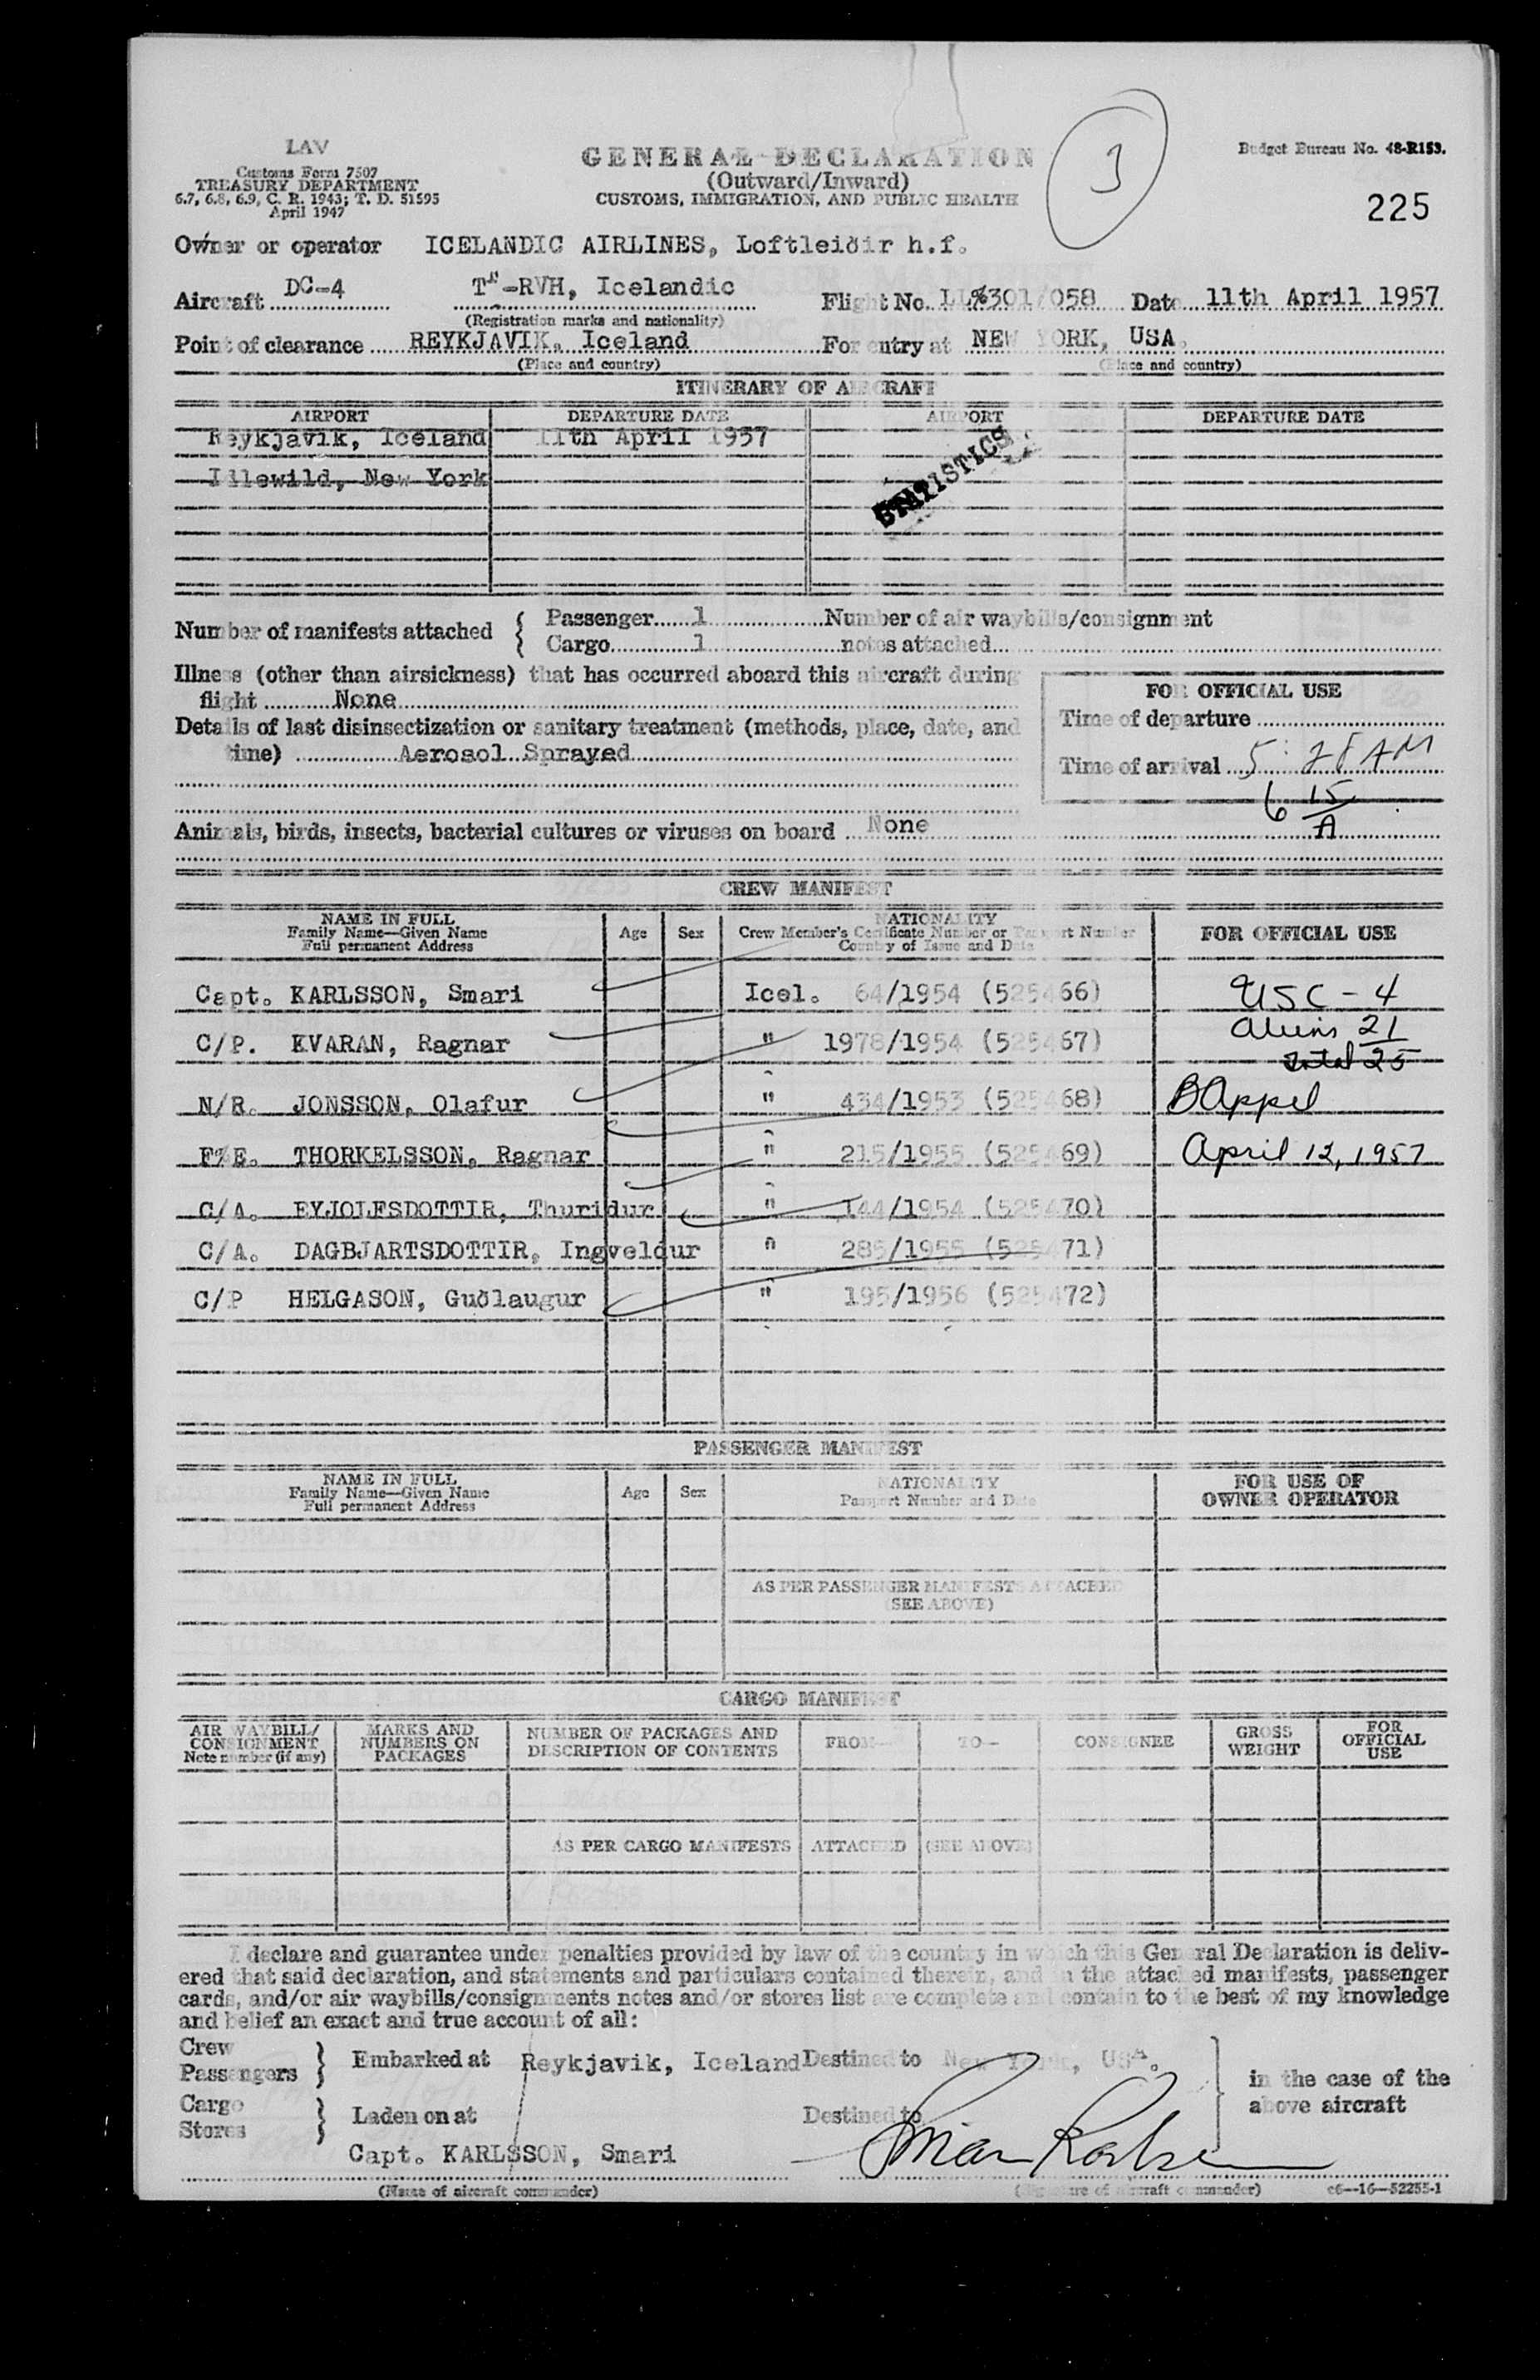 LAV
Customs Form 7507
TREASURY DEPARTMENT
6.7, 6.8, 6.9, C. R. 1943; T. D. 51595
April 1947
GENERAL DECLARATION
(Outward/Inward)
CUSTOMS, IMMIGRATION, AND PUBLIC HEALTH
3
Budget Bureau No. 48-R153.
225
Owner or operator ICELANDIC AIRLINES, Loftleiðir h.f.
Aircraft DC-4 -RVH, Icelandic Flight No. LL%301/058 Date 11th April 1957
(Registration marks and nationality)
Point of clearance REYKJAVIK, Iceland For entry at NEW YORK, USA.
(Place and country) (Place and country)
ITINERARY OF AIRCRAFT
AIRPORT DEPARTURE DATE AIRPORT DEPARTURE DATE
Reykjavik, Iceland 11th April 1957
Idlewild, New York
STATISTICS
Number of manifests attached { Passenger 1 Number of air waybills/consignment
Cargo 1 notes attached
Illness (other than airsickness) that has occurred aboard this aircraft during
flight None
Details of last disinsectization or sanitary treatment (methods, place, date, and
time) Aerosol Sprayed
FOR OFFICIAL USE
Time of departure
Time of arrival 5:28 AM
6 15
A
Animals, birds, insects, bacterial cultures or viruses on board None
CREW MANIFEST
NAME IN FULL
Family Name—Given Name
Full permanent Address
Age Sex
NATIONALITY
Crew Member's Certificate Number or Passport Number
Country of Issue and Date
FOR OFFICIAL USE
Capt. KARLSSON, Smari Icel. 64/1954 (525466) USC - 4
C/P. KVARAN, Ragnar " 1978/1954 (525467) Aliens 21
total 25
N/R. JONSSON, Olafur " 434/1953 (525468) B Appel
F%E. THORKELSSON, Ragnar " 215/1955 (525469) April 12, 1957
C/A. EYJOLFSDOTTIR, Thuridur " 144/1954 (525470)
C/A. DAGBJARTSDOTTIR, Ingveldur " 285/1955 (525471)
C/P HELGASON, Guðlaugur " 195/1956 (525472)
PASSENGER MANIFEST
NAME IN FULL
Family Name—Given Name
Full permanent Address
Age Sex
NATIONALITY
Passport Number and Date
FOR USE OF
OWNER OPERATOR
AS PER PASSENGER MANIFESTS ATTACHED
(SEE ABOVE)
CARGO MANIFEST
AIR WAYBILL/
CONSIGNMENT
Note number (if any)
MARKS AND
NUMBERS ON
PACKAGES
NUMBER OF PACKAGES AND
DESCRIPTION OF CONTENTS
FROM— TO— CONSIGNEE
GROSS
WEIGHT
FOR
OFFICIAL
USE
AS PER CARGO MANIFESTS ATTACHED (SEE ABOVE)
I declare and guarantee under penalties provided by law of the country in which this General Declaration is deliv-
ered that said declaration, and statements and particulars contained therein, and in the attached manifests, passenger
cards, and/or air waybills/consignments notes and/or stores list are complete and contain to the best of my knowledge
and belief an exact and true account of all:
Crew
Passengers } Embarked at Reykjavik, Iceland Destined to New York, USA.
Cargo
Stores } Laden on at Destined to
in the case of the
above aircraft
Capt. KARLSSON, Smari Smári Karlsson
(Name of aircraft commander) (Signature of aircraft commander) c6—16—52255-1